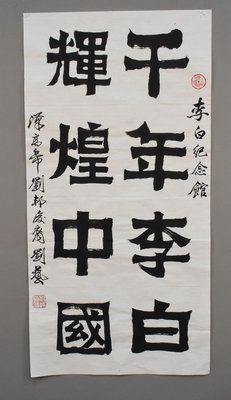 李白纪念館
千年李白
輝煌中國
漢高帝劉邦後裔劉藝